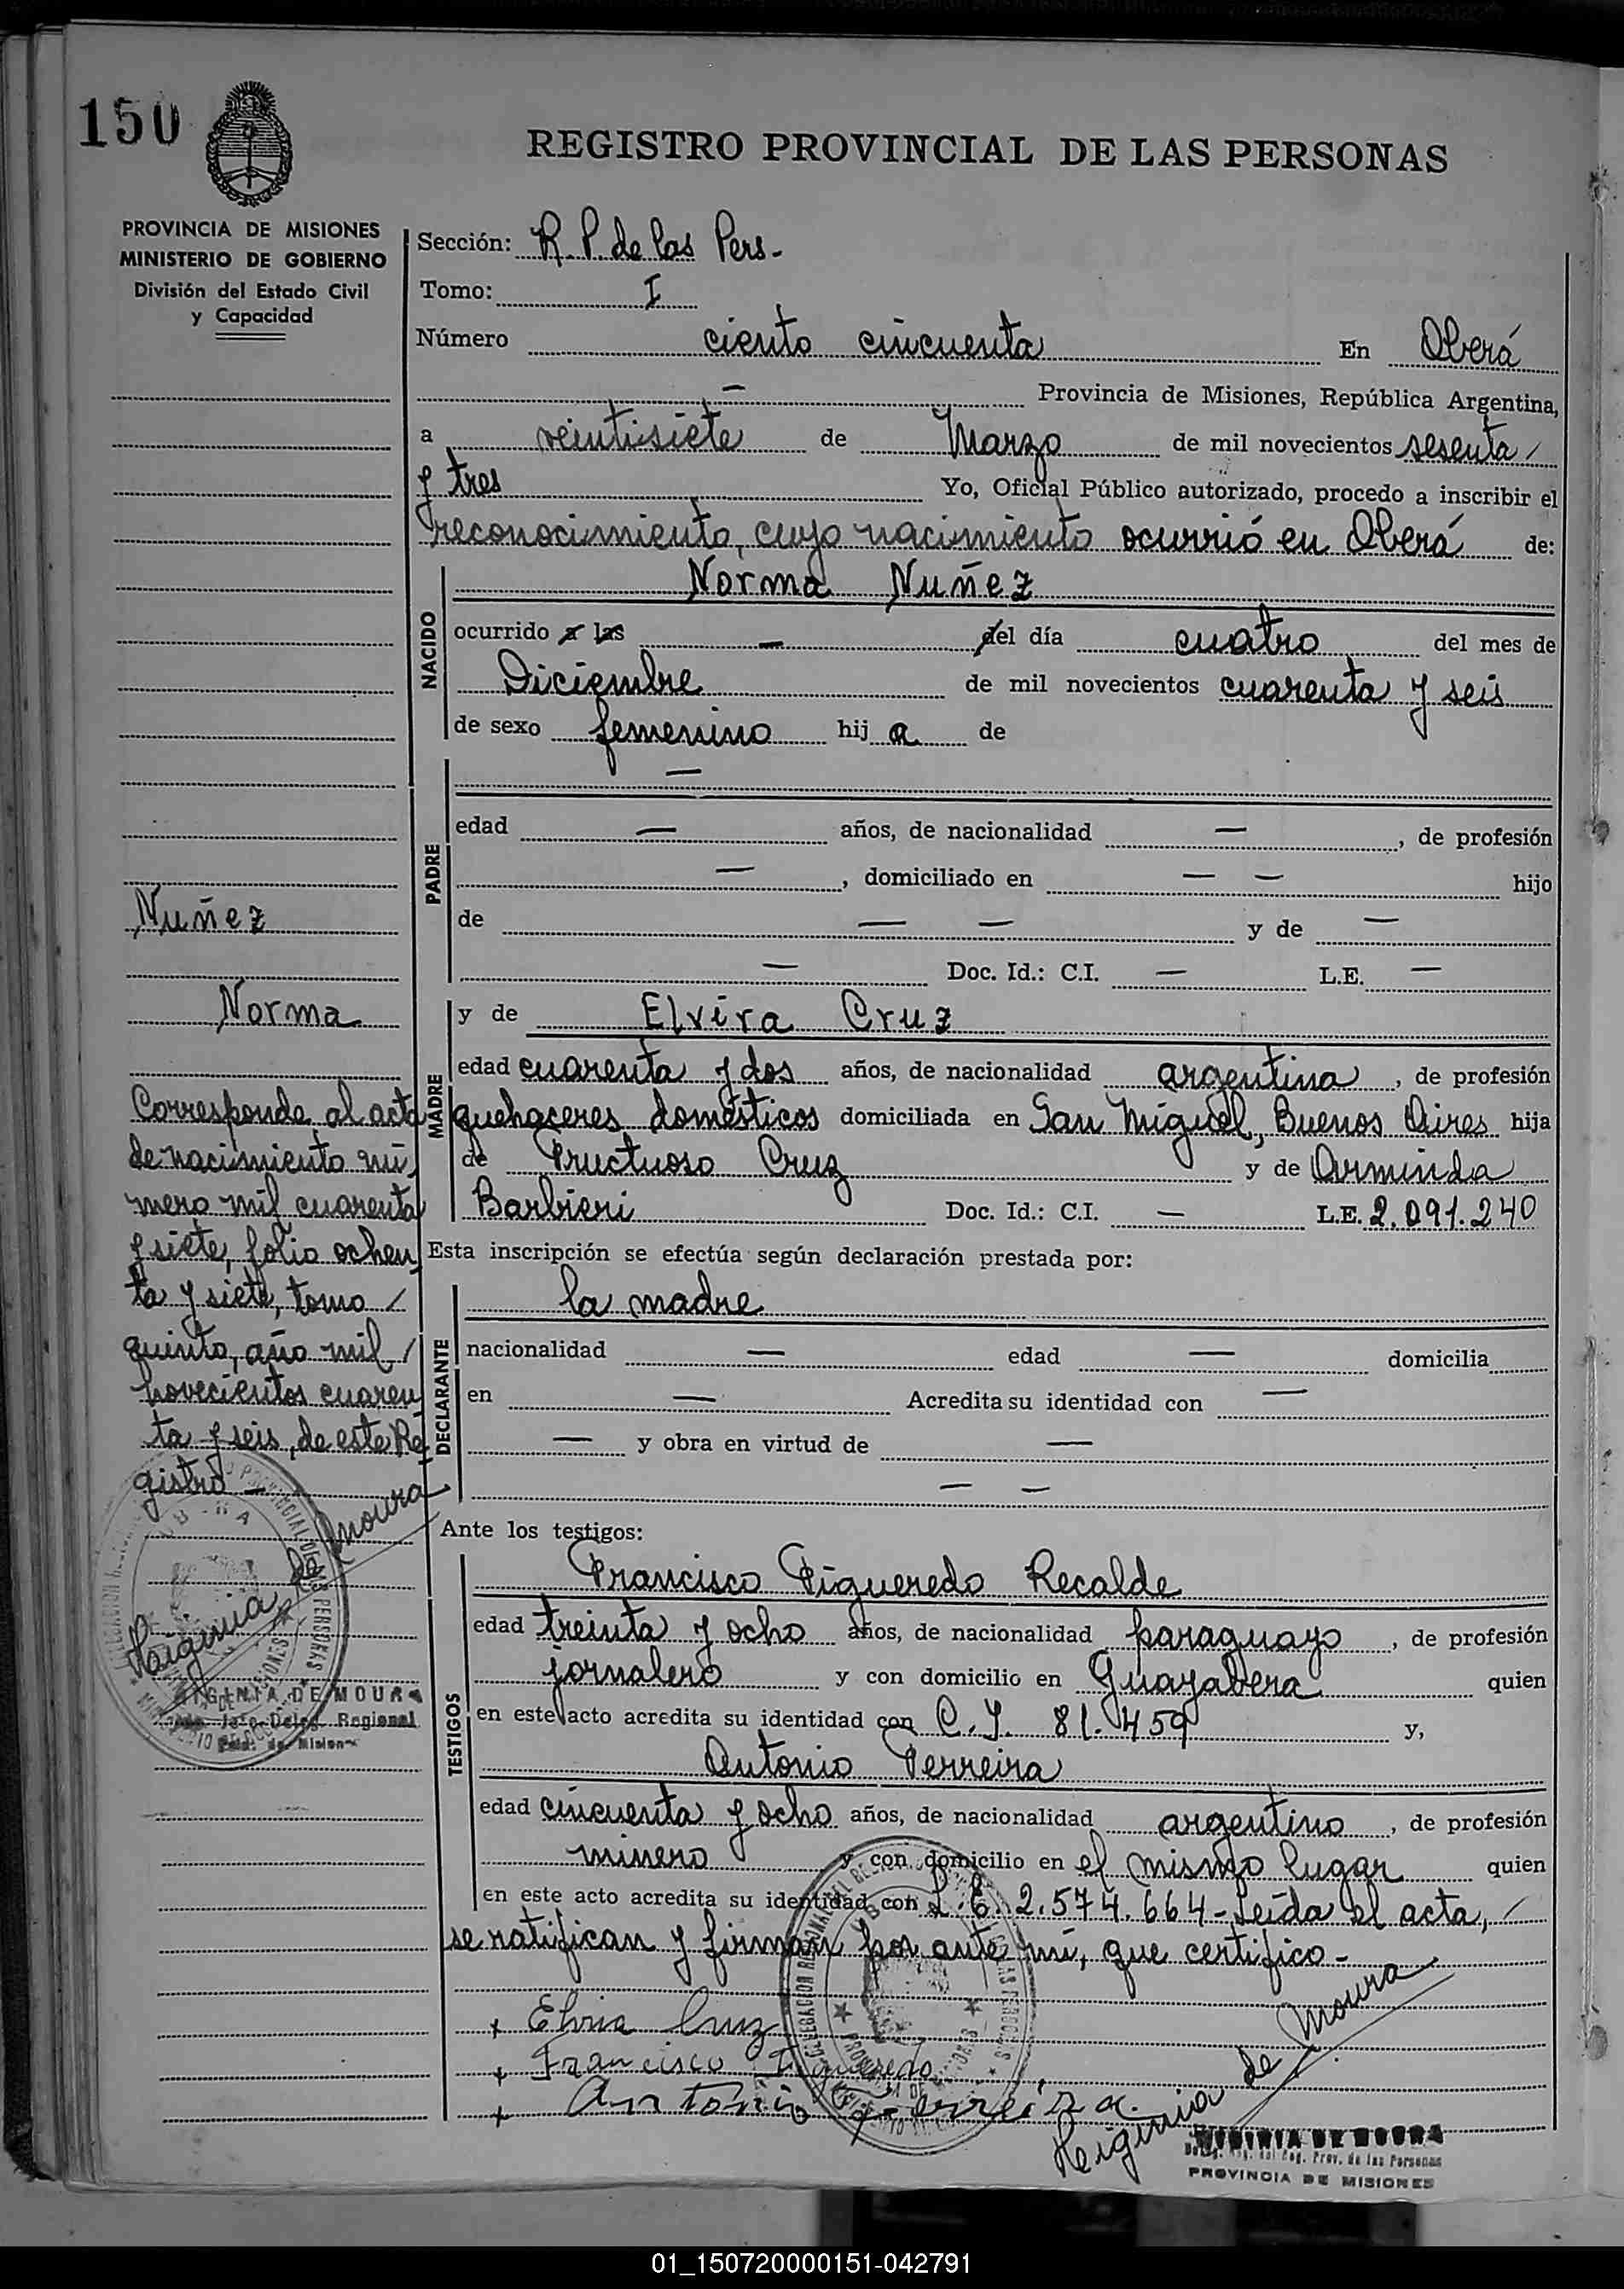 150
REGISTRO PROVINCIAL DE LAS PERSONAS
PROVINCIA DE MISIONES
MINISTERIO DE GOBIERNO
División del Estado Civil
y Capacidad
Sección: R. P. de las Pers.-
Tomo: I
Número ciento cincuenta En Oberá
— Provincia de Misiones, República Argentina,
a veintisiete de Marzo de mil novecientos sesenta /
y tres Yo, Oficial Público autorizado, procedo a inscribir el
reconocimiento, cuyo nacimiento ocurrió en Oberá de:
NACIDO
Norma Nuñez
ocurrido a las — del día cuatro del mes de
Diciembre de mil novecientos cuarenta y seis
de sexo femenino hij a de
PADRE
—
edad — años, de nacionalidad —, de profesión
—, domiciliado en — — hijo
de — — y de —
— Doc. Id.: C.I. — L.E. —
MADRE
y de Elvira Cruz
edad cuarenta y dos años, de nacionalidad argentina, de profesión
quehaceres domésticos domiciliada en San Miguel, Buenos Aires hija
de Fructuoso Cruz y de Arminda
Barbieri Doc. Id.: C.I. — L.E. 2.091.240
Esta inscripción se efectúa según declaración prestada por:
DECLARANTE
la madre
nacionalidad — edad — domicilia
en — Acredita su identidad con —
— y obra en virtud de —
— —
Ante los testigos:
TESTIGOS
Francisco Figueredo Recalde
edad treinta y ocho años, de nacionalidad paraguayo, de profesión
jornalero y con domicilio en Guayabera quien
en este acto acredita su identidad con C. I. 81.459 y,
Antonio Ferreira
edad cincuenta y ocho años, de nacionalidad argentino, de profesión
minero y con domicilio en el mismo lugar quien
en este acto acredita su identidad con L.E. 2.574.664- Leída el acta, /
se ratifican y firman por ante mí, que certifico-
+ Elvira Cruz
+ Francisco Figueredo
+ Antonio Ferreira
Heiginia de Moura
HIGINIA DE MOURA
Reg. Prov. de las Personas
PROVINCIA DE MISIONES
Nuñez
Norma
Corresponde al acta
de nacimiento nú-
mero mil cuarenta
y siete, folio ochen
ta y siete, tomo /
quinto, año mil /
novecientos cuaren
ta y seis, de este Re-
gistro —
Heiginia de Moura
HIGINIA DE MOURA
Jefe Deleg. Regional
01_150720000151-042791